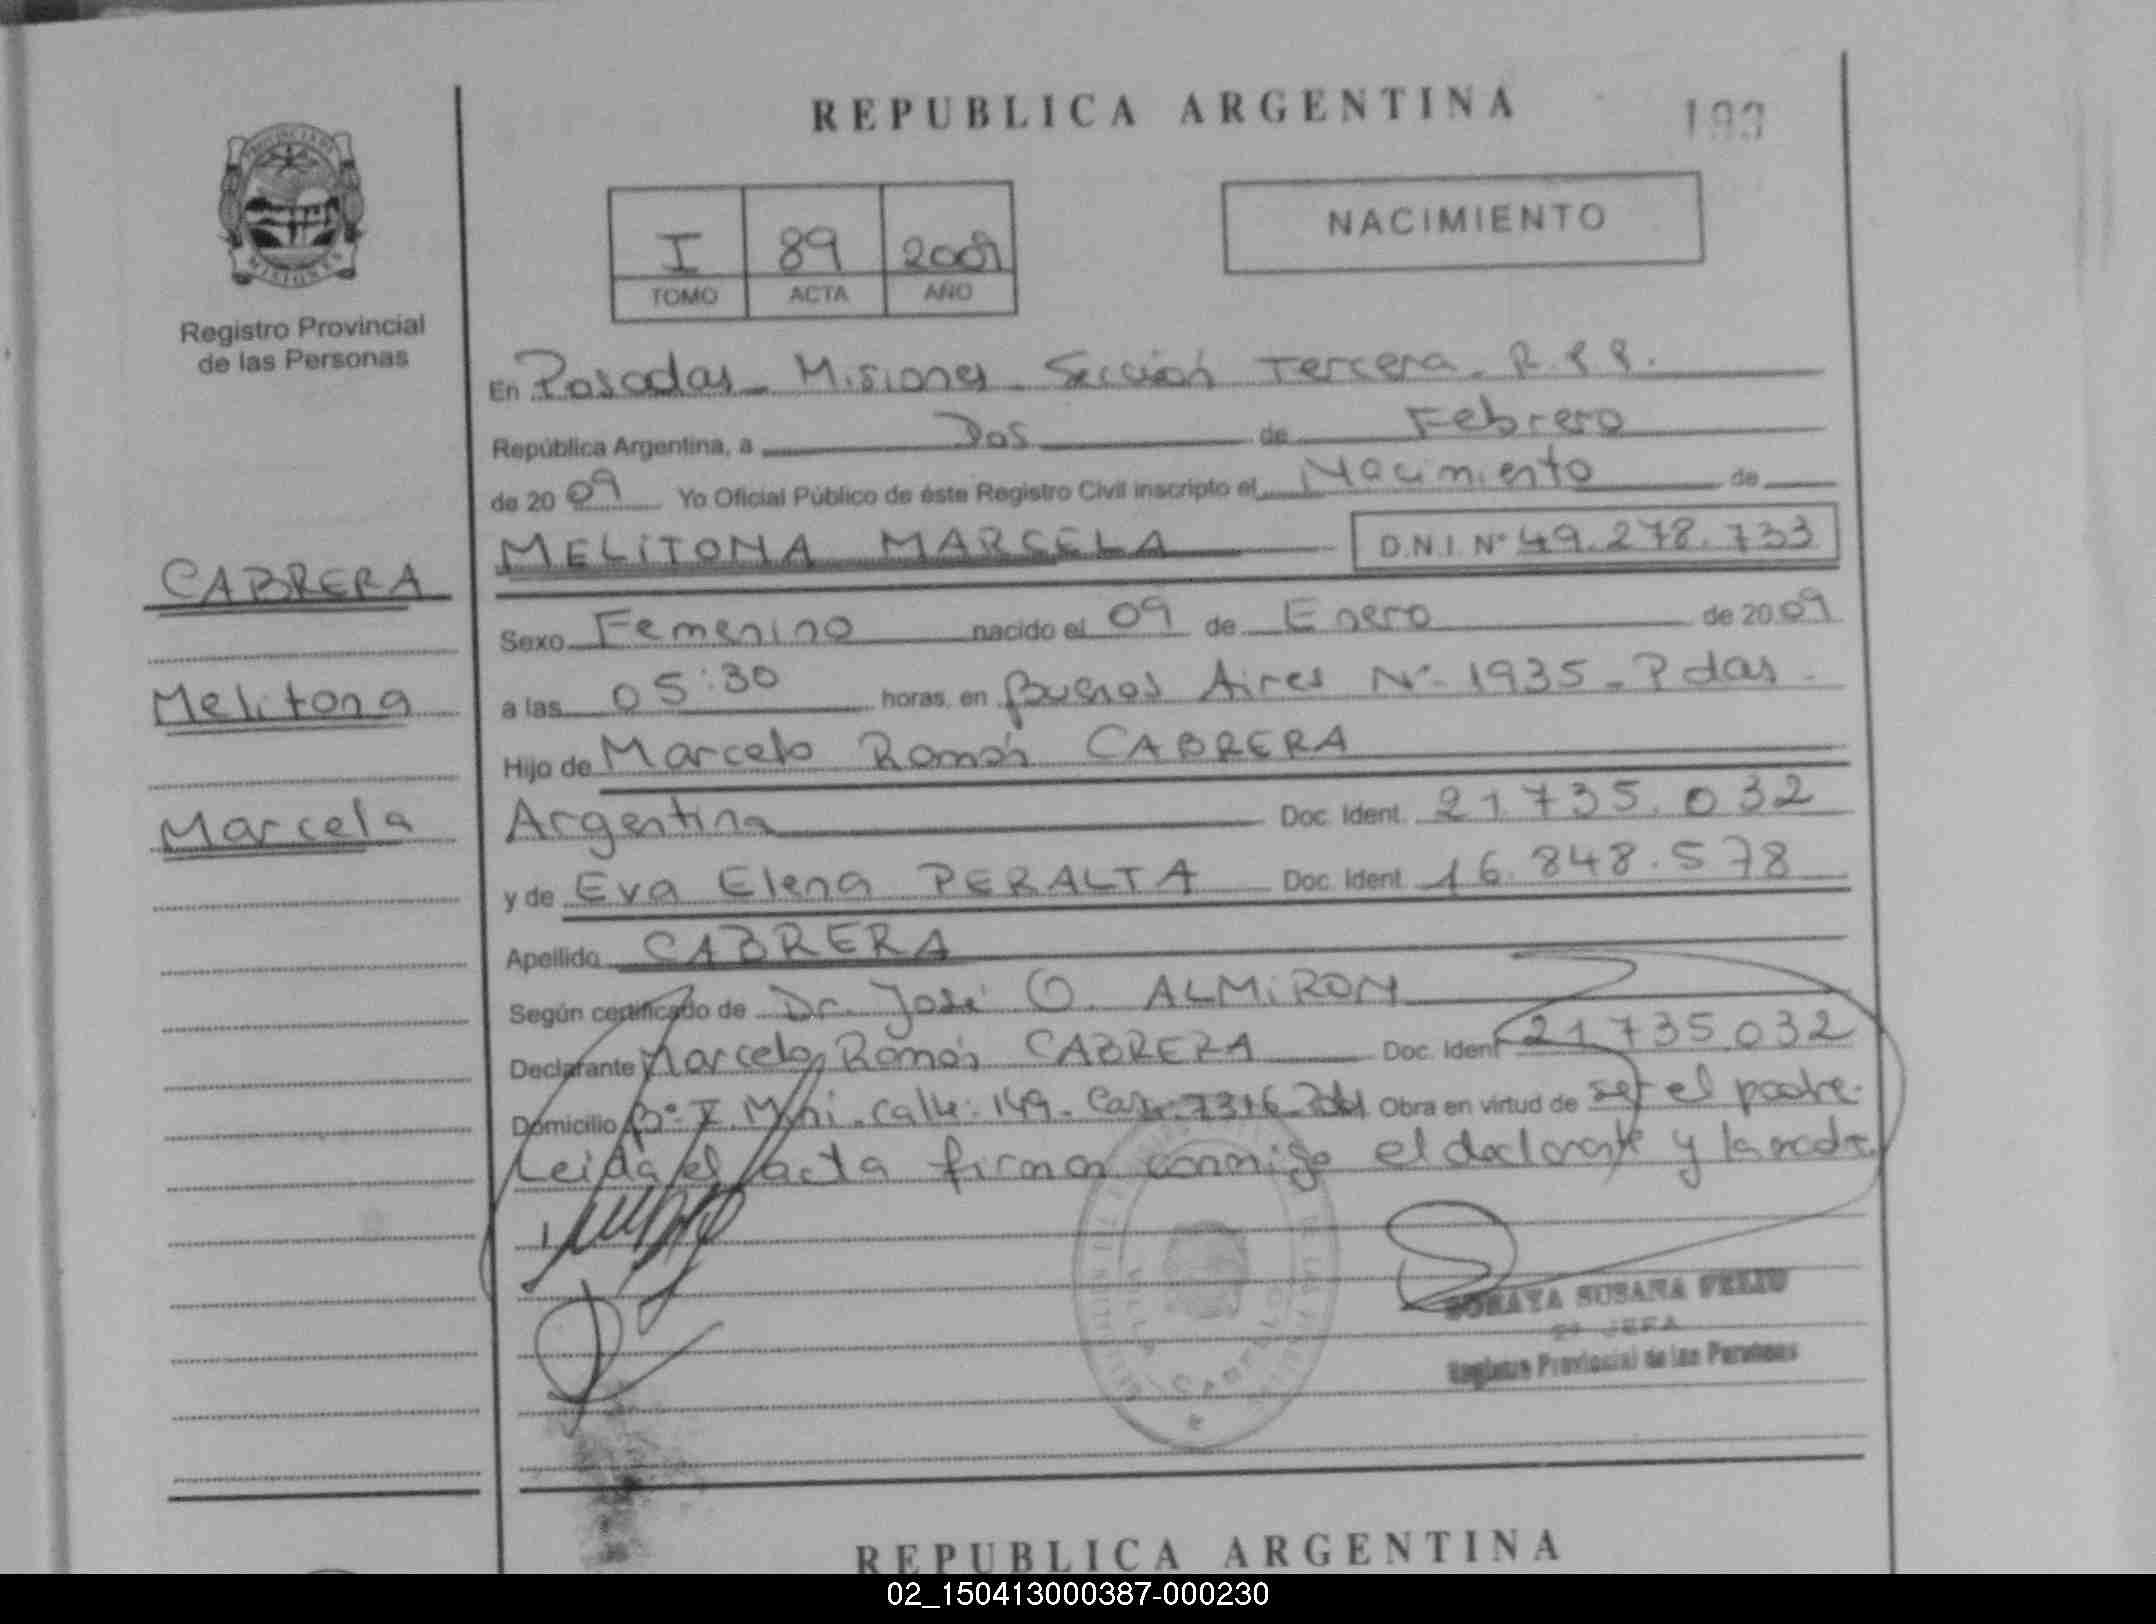 REPUBLICA ARGENTINA
193
PROVINCIA DE
MISIONES
Registro Provincial
de las Personas
I 89 2009
TOMO ACTA AÑO
NACIMIENTO
En Posadas - Misiones - Sección Tercera - R.P.P.
República Argentina, a Dos de Febrero
de 2009 Yo Oficial Público de éste Registro Civil inscripto el Nacimiento de
MELITONA MARCELA D.N.I. Nº 49.278.733
CABRERA
Melitona
Marcela
Sexo Femenino nacido el 09 de Enero de 2009
a las 05:30 horas, en Buenos Aires Nº 1935 - Pdas -
Hijo de Marcelo Ramón CABRERA
Argentina Doc. Ident. 21.735.032
y de Eva Elena PERALTA Doc. Ident. 16.848.578
Apellido CABRERA
Según certificado de Dr. José O. ALMIRON
Declarante Marcelo Ramón CABRERA Doc. Ident 21.735.032
Domicilio Calle: 149 - Casa 7316 Obra en virtud de ser el padre.
Leida el acta firman conmigo el declarante y la madre
SORAYA SUSANA FELIU
JEFA
Registro Provincial de las Personas
REPUBLICA ARGENTINA
02_150413000387-000230